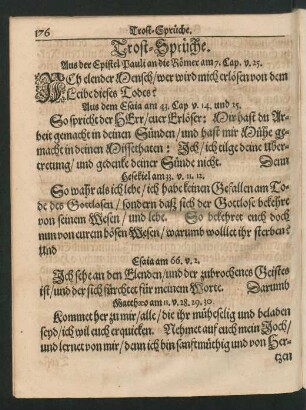 176 Trost-Sprüche.
Trost-Sprüche.
Aus der Epistel Pauli an die Römer am 7. Cap. v. 25.
ACh elender Mensch/ wer wird mich erlösen von dem
Leibe dieses Todes?
Aus dem Esaia am 43. Cap v. 14. und 15.
So spricht der HErr/ euer Erlöser: Mir hast du Ar-
beit gemacht in deinen Sünden/ und hast mir Mühe ge-
macht in deinen Missethaten: Ich/ ich tilge deine Uber-
tretung/ und gedenke deiner Sünde nicht. Denn
Hesekiel am 33. v. 11. 12.
So wahr als ich lebe/ ich habe keinen Gefallen am To-
de des Gottlosen/ sondern daß sich der Gottlose bekehre
von seinem Wesen/ und lebe. So bekehret euch doch
nun von eurem bösen Wesen/ warumb wolllet ihr sterben?
Und
Esaia am 66. v. 2.
Ich sehe an den Elenden/ und der zubrochenes Geistes
ist/ und der sich fürchtet für meinem Worte. Darumb
Matthæo am 11. v. 28. 29. 30.
Kommet her zu mir/ alle/ die ihr mühselig und beladen
seyd/ ich wil euch erquicken. Nehmet auf euch mein Joch/
und lernet von mir/ denn ich bin sanftmüthig und von Her-
tzen